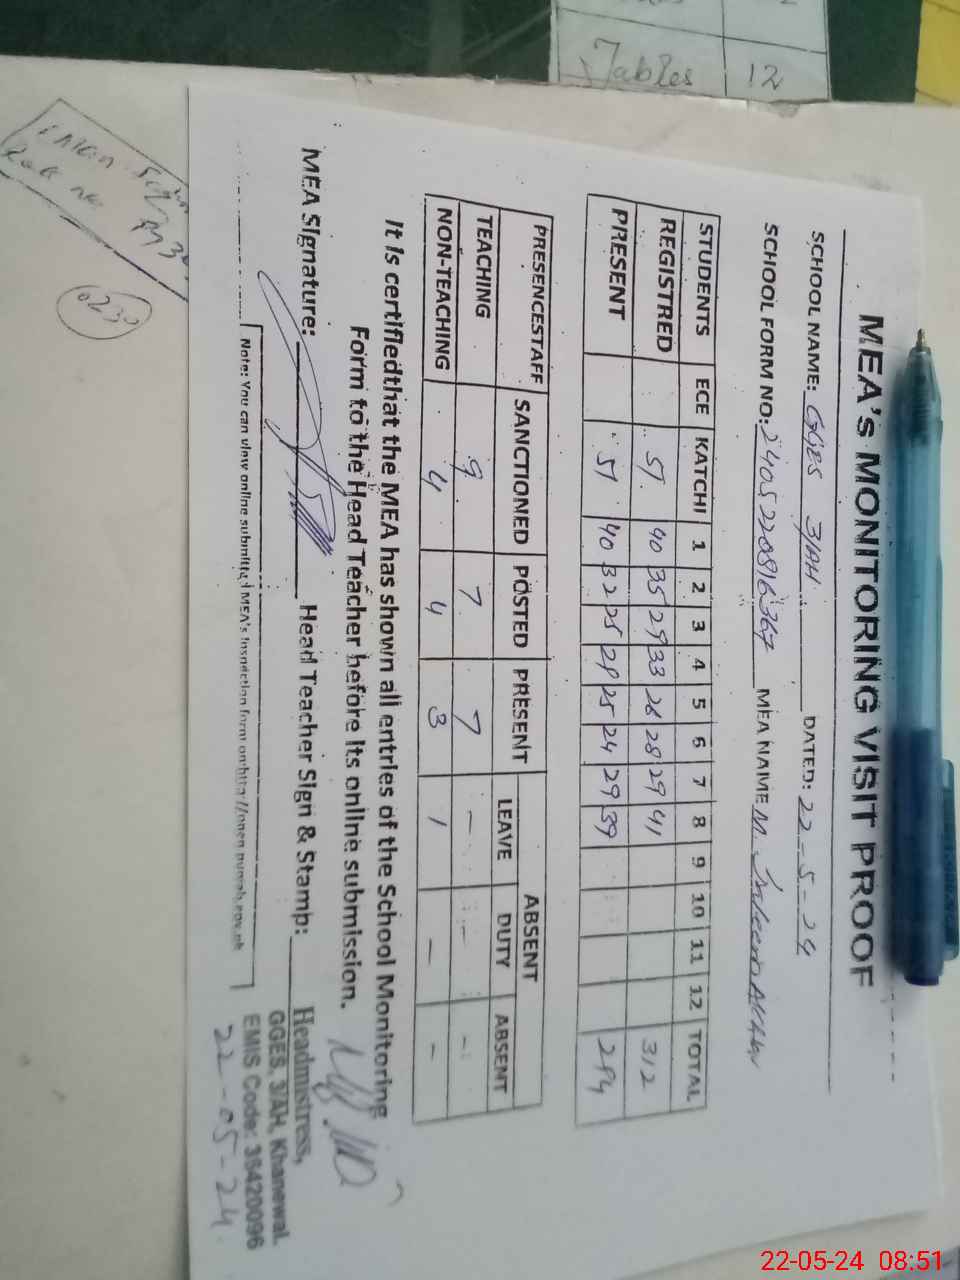 Tables 12
MEA's MONITORING VISIT PROOF
SCHOOL NAME: GGES 3/AH DATED: 22-5-24
SCHOOL FORM NO: 2405220816367 MEA NAME M.
STUDENTS ECE KATCHI 1 2 3 4 5 6 7 8 9 10 11 12 TOTAL
REGISTRED 51 40 35 29 33 26 28 29 41 312
PRESENT 51 40 32 25 29 25 24 29 39 294
PRESENCESTAFF SANCTIONED POSTED PRESENT ABSENT
LEAVE DUTY ABSENT
TEACHING 9 7 7 - - -
NON-TEACHING 4 4 3 1 - -
It is certifiedthat the MEA has shown all entries of the School Monitoring
Form to the Head Teacher before its online submission.
MEA Signature: Head Teacher Sign & Stamp:
Headmistress,
GGES, 3/AH, Khanewal.
EMIS Code: 35420096
22-05-24
Note: You can view online submitted MEA's inspection form on http://open.punjab.gov.pk
0230
22-05-24 08:51